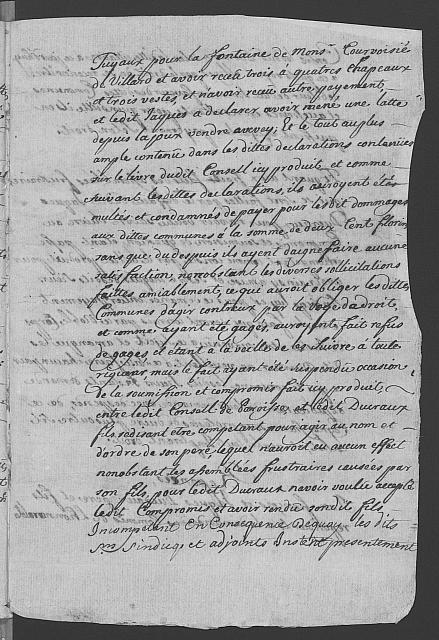 Tuyaux pour la fontaine de Monsr Courvoisié
de Villard et avoir receu trois à quatres chapeaux
et trois vestes, et n'avoir receu autre payement
et ledit Jaques a declarer avoir mené une latte
depuis la pour vendre a vevey; Et le tout au ples
ample contenu dans les dittes declarations contenues
sur le livre dudit Conseil icy produit et comme
suivant lesdittes declarations, ils auroyent etés
multés et condamnés de payer pour lesdit dommages
aux dittes communes a la somme de deux Cent florins
sans que du depuis ils ayent daigné faire aucune
satisfaction, nonobstant les diverses sollicitations
faittes amiablement, ce qui auroit obliger les dittes
Communes d'agir contr'eux par la voye da droit,
et comme ayant été gagés, auroyent fait refus
de gages et étant a la veille de les suivre à toute
rigueur mais le fait ayant été suspendu ocasion
de la soumission et compromis fait icy produit,
entre ledit Conseil de Paroisse, et ledit Ducraux
fils se disant être competant pour agir au nom et
d'ordre de son pere lequel n'auroit eu aucun effect
nonobstant les assemblées frustraires causées par
son fils, pour ledit Ducraux n'avoir voulu accepté
ledit Compromis et avoir rendu sondit fils
Incompetant En Consequence Dequoy les dits
Srs Sindiqs et adjoints Instent presentement